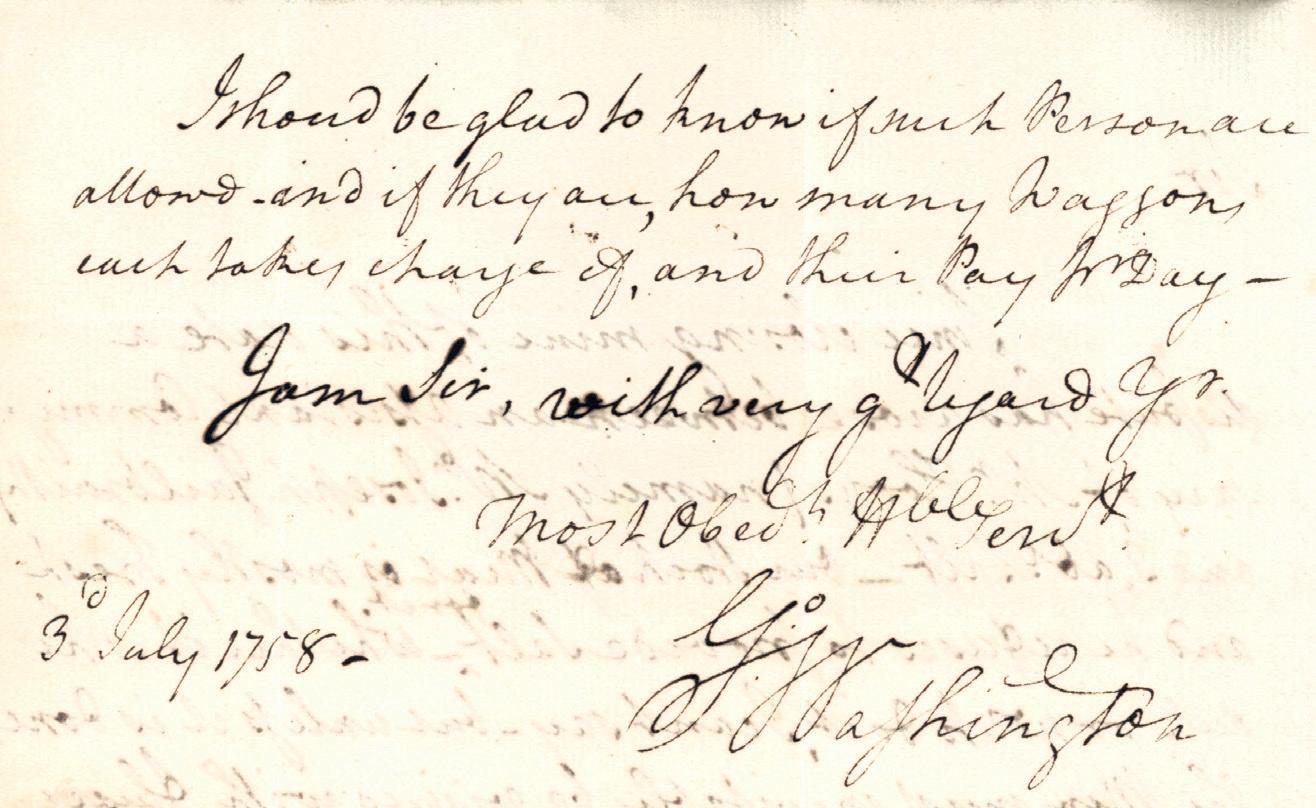 I shoud be glad to know if such Person are
allowd - and if they are, how many Waggons
each takes charge of, and their Pay pr Day —
I am Sir, with very gt Regard Yr.
Most Obedt. Hble Servt.
3d July 1758 -
Go: Washington